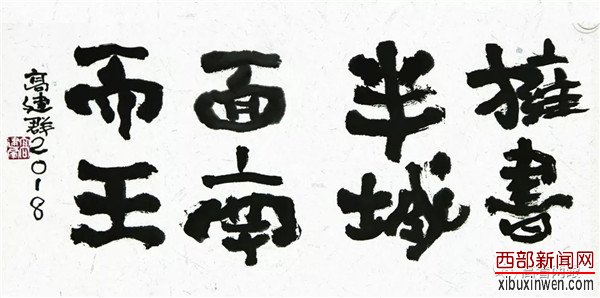 擁書
半城
面南
而王
高建群2018
西部新闻网
xibuxinwen.com